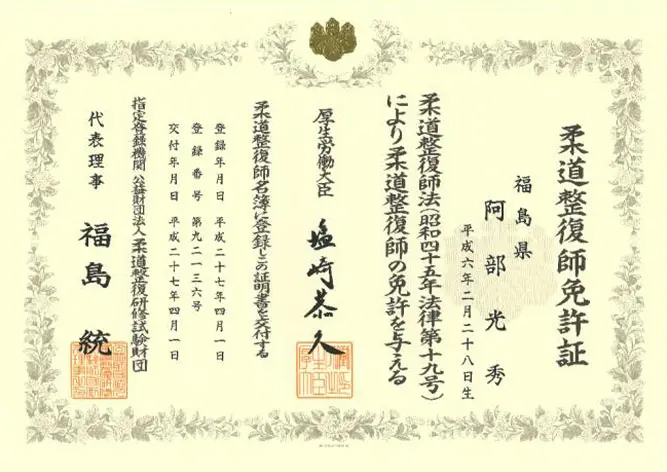 柔道整復師免許証
福島県
阿部光秀
平成六年二月二十八日生
柔道整復師法(昭和四十五年法律第十九号)
により柔道整復師の免許を与える
厚生労働大臣 塩崎恭久
柔道整復師名簿に登録しこの証明書を交付する
登録年月日 平成二十七年四月一日
登録番号 第九二一三六号
交付年月日 平成二十七年四月一日
指定登録機関 公益財団法人 柔道整復研修試験財団
代表理事 福島統